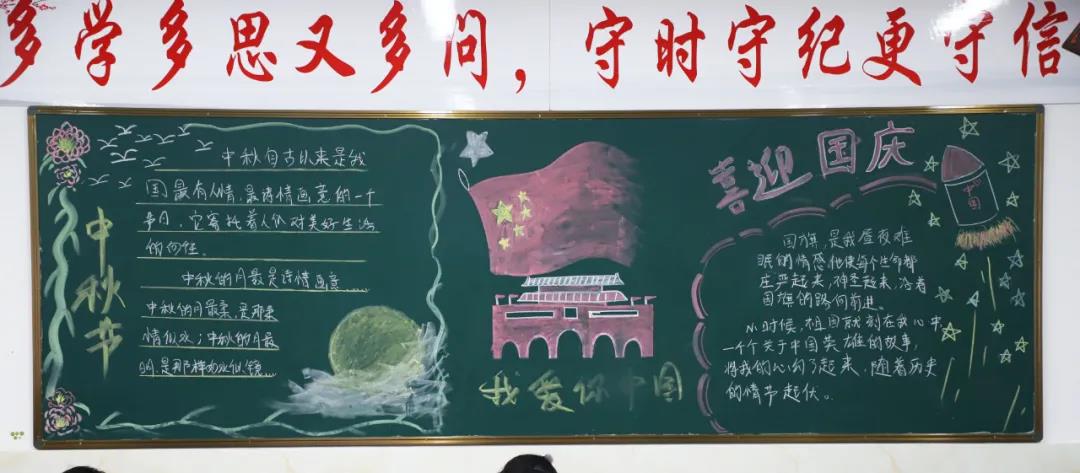 多学多思又多问，守时守纪更守信
中秋节
中秋自古以来是我
国最有人情、最诗情画意的一个
节日，它寄托着人们对美好生活
的向往。
中秋的月最是诗情画意
中秋的月最柔，是那柔
情似水；中秋的月最
明，是那样的水似镜
我爱你中国
喜迎国庆
中国
国旗，是我昼夜难
眠的情感，他使每个生命都
庄严起来，神圣起来，沿着
国旗的路向前进。
小时候，祖国就刻在我心中，
一个个关于中国英雄的故事，
将我的心勾了起来，随着历史
的情节起伏。